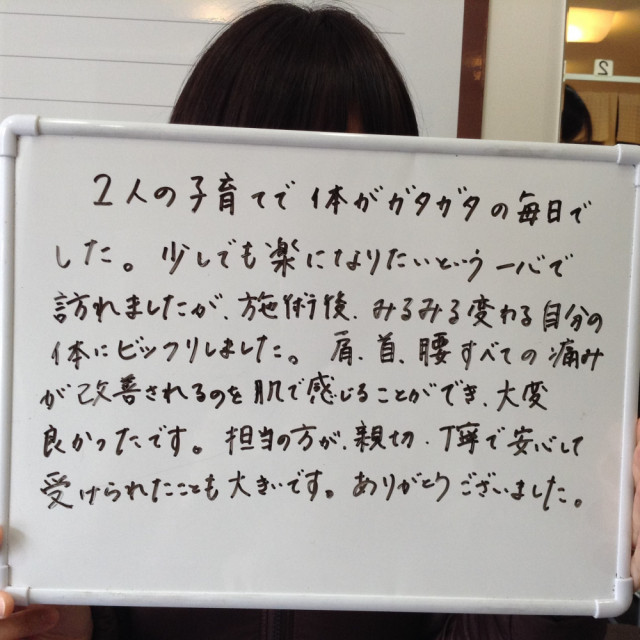 2人の子育てで体がガタガタの毎日で
した。少しでも楽になりたいという一心で
訪れましたが、施術後、みるみる変わる自分の
体にビックリしました。肩、首、腰すべての痛み
が改善されるのを肌で感じることができ、大変
良かったです。担当の方が、親切、丁寧で安心して
受けられたことも大きいです。ありがとうございました。
2